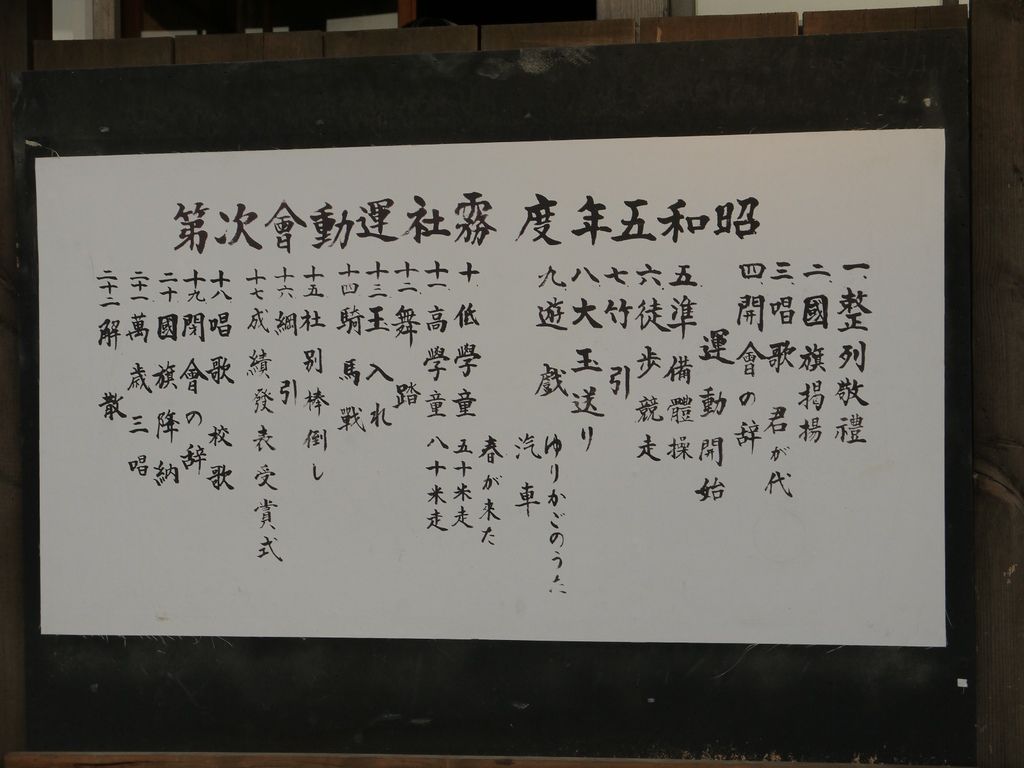 昭和五年度 霧社運動會次第
一、整列敬禮
二、國旗掲揚
三、唱歌 君が代
四、開會の辞
運動開始
五、準備體操
六、徒歩競走
七、竹引
八、大玉送り
九、遊戯
ゆりかごのうた
汽車
春が来た
十、低學童 五十米走
十一、高學童 八十米走
十二、舞踏
十三、玉入れ
十四 騎馬戰
十五 社別棒倒し
十六 綱引
十七 成績發表受賞式
十八 唱歌 校歌
十九 閉會の辞
二十 國旗降納
二十一 萬歳三唱
二十二 解散